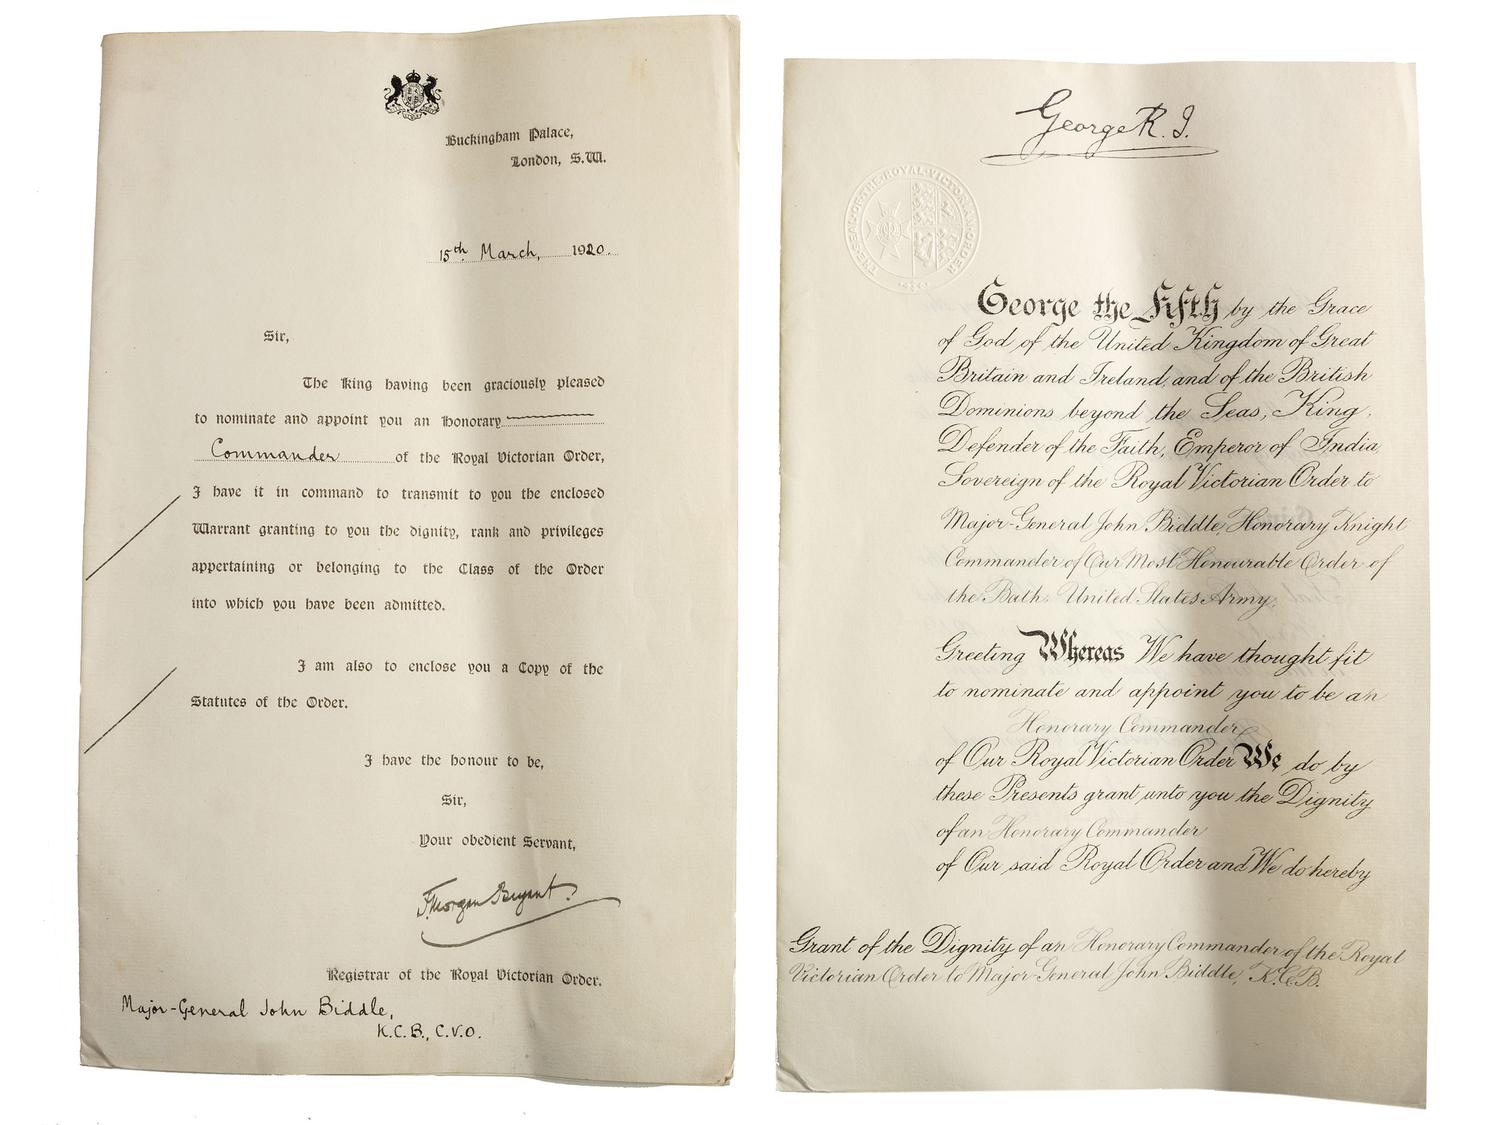 Buckingham Palace,
London, S.W.
15th March, 1920.
Sir,
The King having been graciously pleased
to nominate and appoint you an Honorary
Commander of the Royal Victorian Order,
I have it in command to transmit to you the enclosed
Warrant granting to you the dignity, rank and privileges
appertaining or belonging to the Class of the Order
into which you have been admitted.
I am also to enclose you a Copy of the
Statutes of the Order.
I have the honour to be,
Sir,
Your obedient Servant,
F. Morgan Bryant.
Registrar of the Royal Victorian Order.
Major-General John Biddle,
K.C.B., C.V.O.
George R. I.
THE·SEAL·OF·THE·ROYAL·VICTORIAN·ORDER
George the Fifth by the Grace
of God of the United Kingdom of Great
Britain and Ireland, and of the British
Dominions beyond the Seas, King,
Defender of the Faith, Emperor of India,
Sovereign of the Royal Victorian Order to
Major-General John Biddle, Honorary Knight
Commander of Our Most Honourable Order of
the Bath, United States Army,
Greeting Whereas We have thought fit
to nominate and appoint you to be an
Honorary Commander
of Our Royal Victorian Order We do by
these Presents grant unto you the Dignity
of an Honorary Commander
of Our said Royal Order and We do hereby
Grant of the Dignity of an Honorary Commander of the Royal
Victorian Order to Major-General John Biddle, K.C.B.